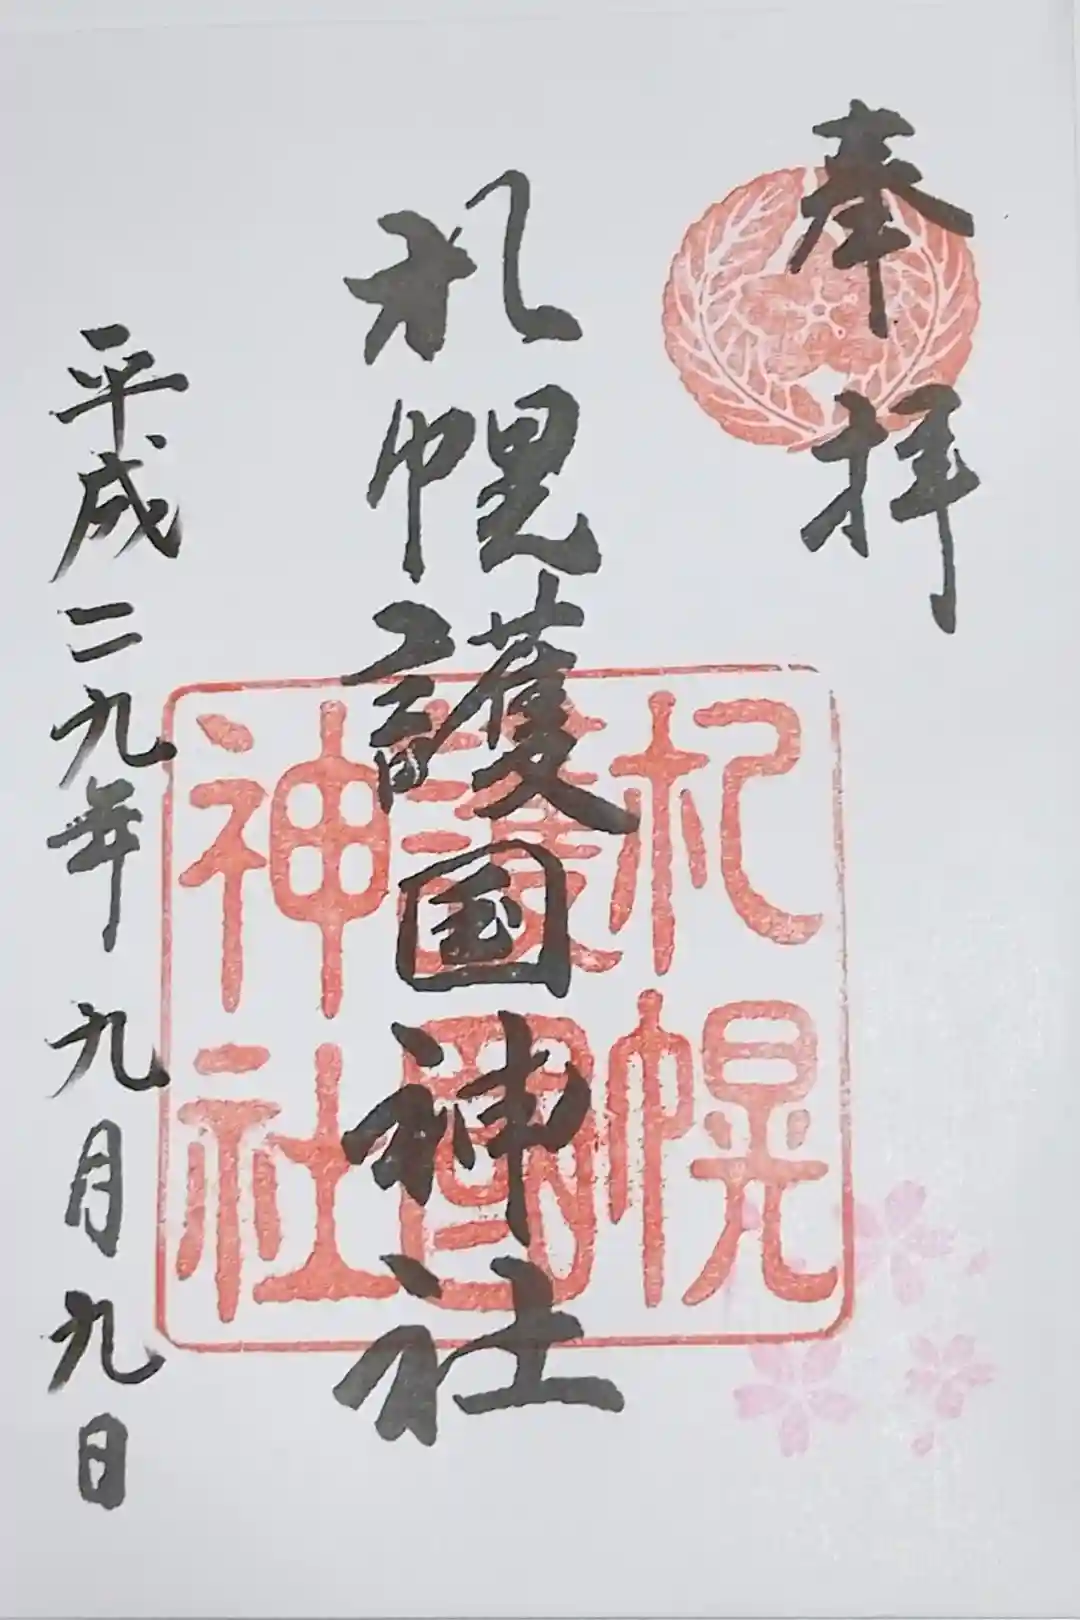 奉拝
札幌護国神社
札幌
護國
神社
平成二九年九月九日